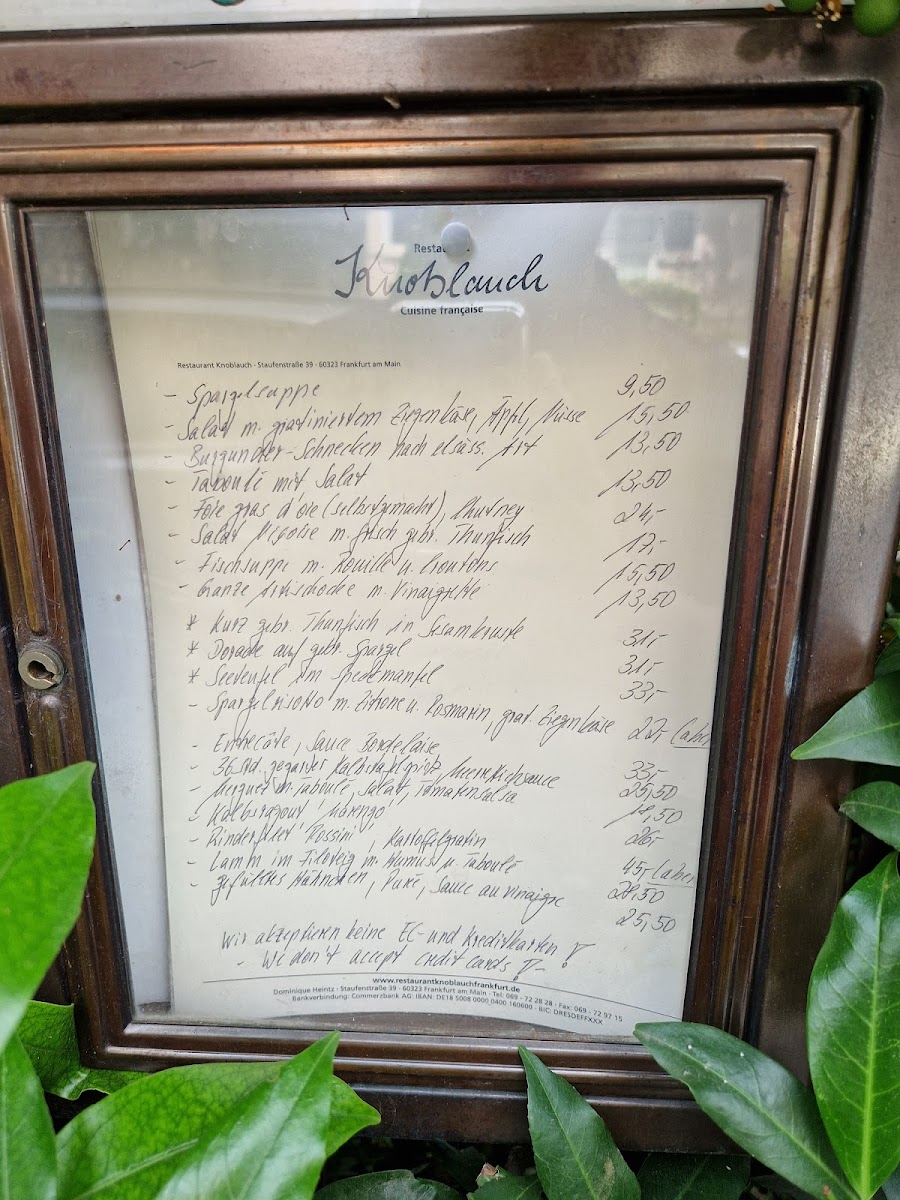 Restau
Knoblauch
Cuisine française
Restaurant Knoblauch · Staufenstraße 39 · 60323 Frankfurt am Main
- Spargelsuppe 9,50
- Salat m. gratiniertem Ziegenkäse, Äpfl, Nüsse 15,50
- Burgunder-Schnecken nach elsäss. Art 13,50
- Taboulé mit Salat 13,50
- Foie gras d'oie (selbstgemacht), Chutney 24,-
- Salat Niçoise m. frisch gebr. Thunfisch 17,-
- Fischsuppe m. Rouille u. Croutons 15,50
- Ganze Artischocke m. Vinaigrette 13,50
* Kurz gebr. Thunfisch in Sesamkruste 31,-
* Dorade auf gebr. Spargel 31,-
* Seeteufel im Speckmantel 33,-
- Spargelrisotto m. Zitrone u. Rosmarin, grat. Ziegenkäse 22,-
- Entrecôte, Sauce Bordelaise 33,-
- 36 Std. gegarter Kalbstafelspitz, Meerrettichsauce 25,50
- Merguez m. Taboulé, Salat, Tomatensalsa ,50
- Kalbsragout "Marengo" 26,-
- Rinderfilet "Rossini", Kartoffelgratin 45,-
- Lamm im Filoteig m. Humus u. Taboulé 28,50
- gefülltes Hähnchen, Püré, Sauce au vinaigre 25,50
Wir akzeptieren keine EC- und Kreditkarten !
- We don't accept credit cards ! -
www.restaurantknoblauchfrankfurt.de
Dominique Heintz · Staufenstraße 39 · 60323 Frankfurt am Main · Tel. 069 - 72 28 28 · Fax: 069 - 72 97 15
Bankverbindung: Commerzbank AG: IBAN: DE18 5008 0000 0400 160600 · BIC: DRESDEFFXXX